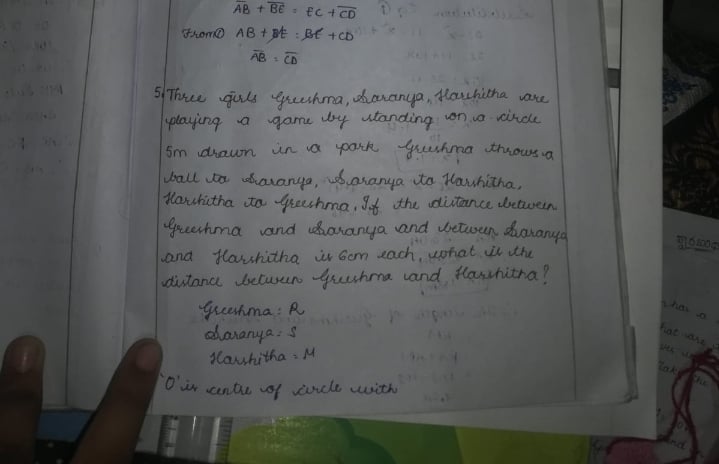 AB + BE = EC + CD
From① AB + BE = BE + CD
AB = CD
5. Three girls Greeshma, Saranya, Harshitha are
playing a game by standing on a circle
5m drawn in a park Greeshma throws a
ball to Saranya, Saranya to Harshitha,
Harshitha to Greeshma, If the distance between
Greeshma and Saranya and between Saranya
and Harshitha is 6cm each, what is the
distance between Greeshma and Harshitha?
Greeshma : R
Saranya : S
Harshitha = M
'O' is centre of circle with